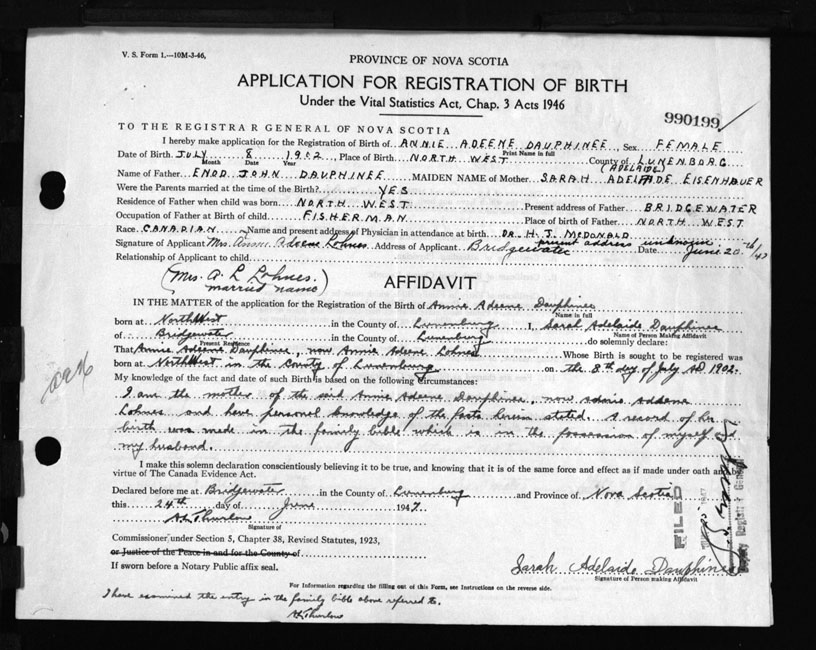 V. S. Form 1.—10M-3-46,
PROVINCE OF NOVA SCOTIA
APPLICATION FOR REGISTRATION OF BIRTH
Under the Vital Statistics Act, Chap. 3 Acts 1946
990199
TO THE REGISTRAR GENERAL OF NOVA SCOTIA
I hereby make application for the Registration of Birth of ANNIE ADEENE DAUPHINEE Sex FEMALE
Print Name in full
Date of Birth JULY 8 1902, Place of Birth NORTH WEST County of LUNENBURG
Month Date Year
(ADELAIDE)
Name of Father ENOD JOHN DAUPHINEE MAIDEN NAME of Mother SARAH ADELAIDE EISENHAUER
Were the Parents married at the time of the Birth? YES
Residence of Father when child was born NORTH WEST Present address of Father BRIDGEWATER
Occupation of Father at Birth of child FISHERMAN Place of Birth of father NORTH WEST
Race CANADIAN Name and present address of Physician in attendance at birth DR. H. J. McDONALD
present address unknown
Signature of Applicant Mrs. Annie Adeene Lohnes Address of Applicant Bridgewater Date June 20th/47
Relationship of Applicant to child
(Mrs. A L Lohnes.
married name)
AFFIDAVIT
IN THE MATTER of the application for the Registration of the Birth of Annie Adeene Dauphinee
Name in full
born at NorthWest in the County of Lunenburg I, Sarah Adelaide Dauphinee
Name of Person Making Affidavit
of Bridgewater in the County of Lunenburg do solemnly declare:
Present Residence
That Annie Adeene Dauphinee, now Annie Adeene Lohnes Whose Birth is sought to be registered was
born at NorthWest in the County of Lunenburg on the 8th day of July A.D. 1902.
My knowledge of the fact and date of such Birth is based on the following circumstances:
I am the mother of the said Annie Adeene Dauphinee, now Annie Addene
Lohnes and have personal knowledge of the facts herein stated. A record of her
birth was made in the family bible which is in the possession of myself and
my husband.
I make this solemn declaration conscientiously believing it to be true, and knowing that it is of the same force and effect as if made under oath and by
virtue of The Canada Evidence Act.
Declared before me at Bridgewater in the County of Lunenburg and Province of Nova Scotia
this 24th day of June 1947
Signature of
Commissioner under Section 5, Chapter 38, Revised Statutes, 1923,
or Justice of the Peace in and for the County of
If sworn before a Notary Public affix seal.
Sarah Adelaide Dauphinee
Signature of Person making Affidavit
FILED
Deputy Registrar General
For Information regarding the filling out of this Form, see Instructions on the reverse side.
I have examined the entry in the family bible above referred to.